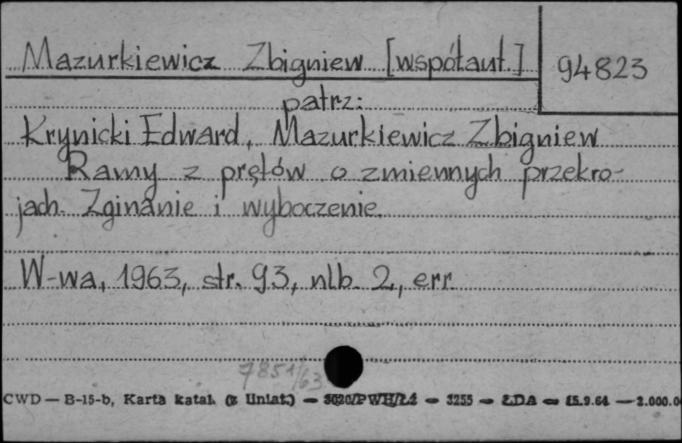 Mazurkiewicz Zbigniew [współaut.]
94823
patrz:
Krynicki Edward, Mazurkiewicz Zbigniew
Ramy z prętów o zmiennych przekro-
jach. Zginanie i wyboczenie.
W-wa, 1963, str. 93, nlb. 2, err.
7851/63
CWD — B-15-b, Karta katal. (z liniat.) — — 3255 — ŁDA — 15.9.64 — 2.000.0